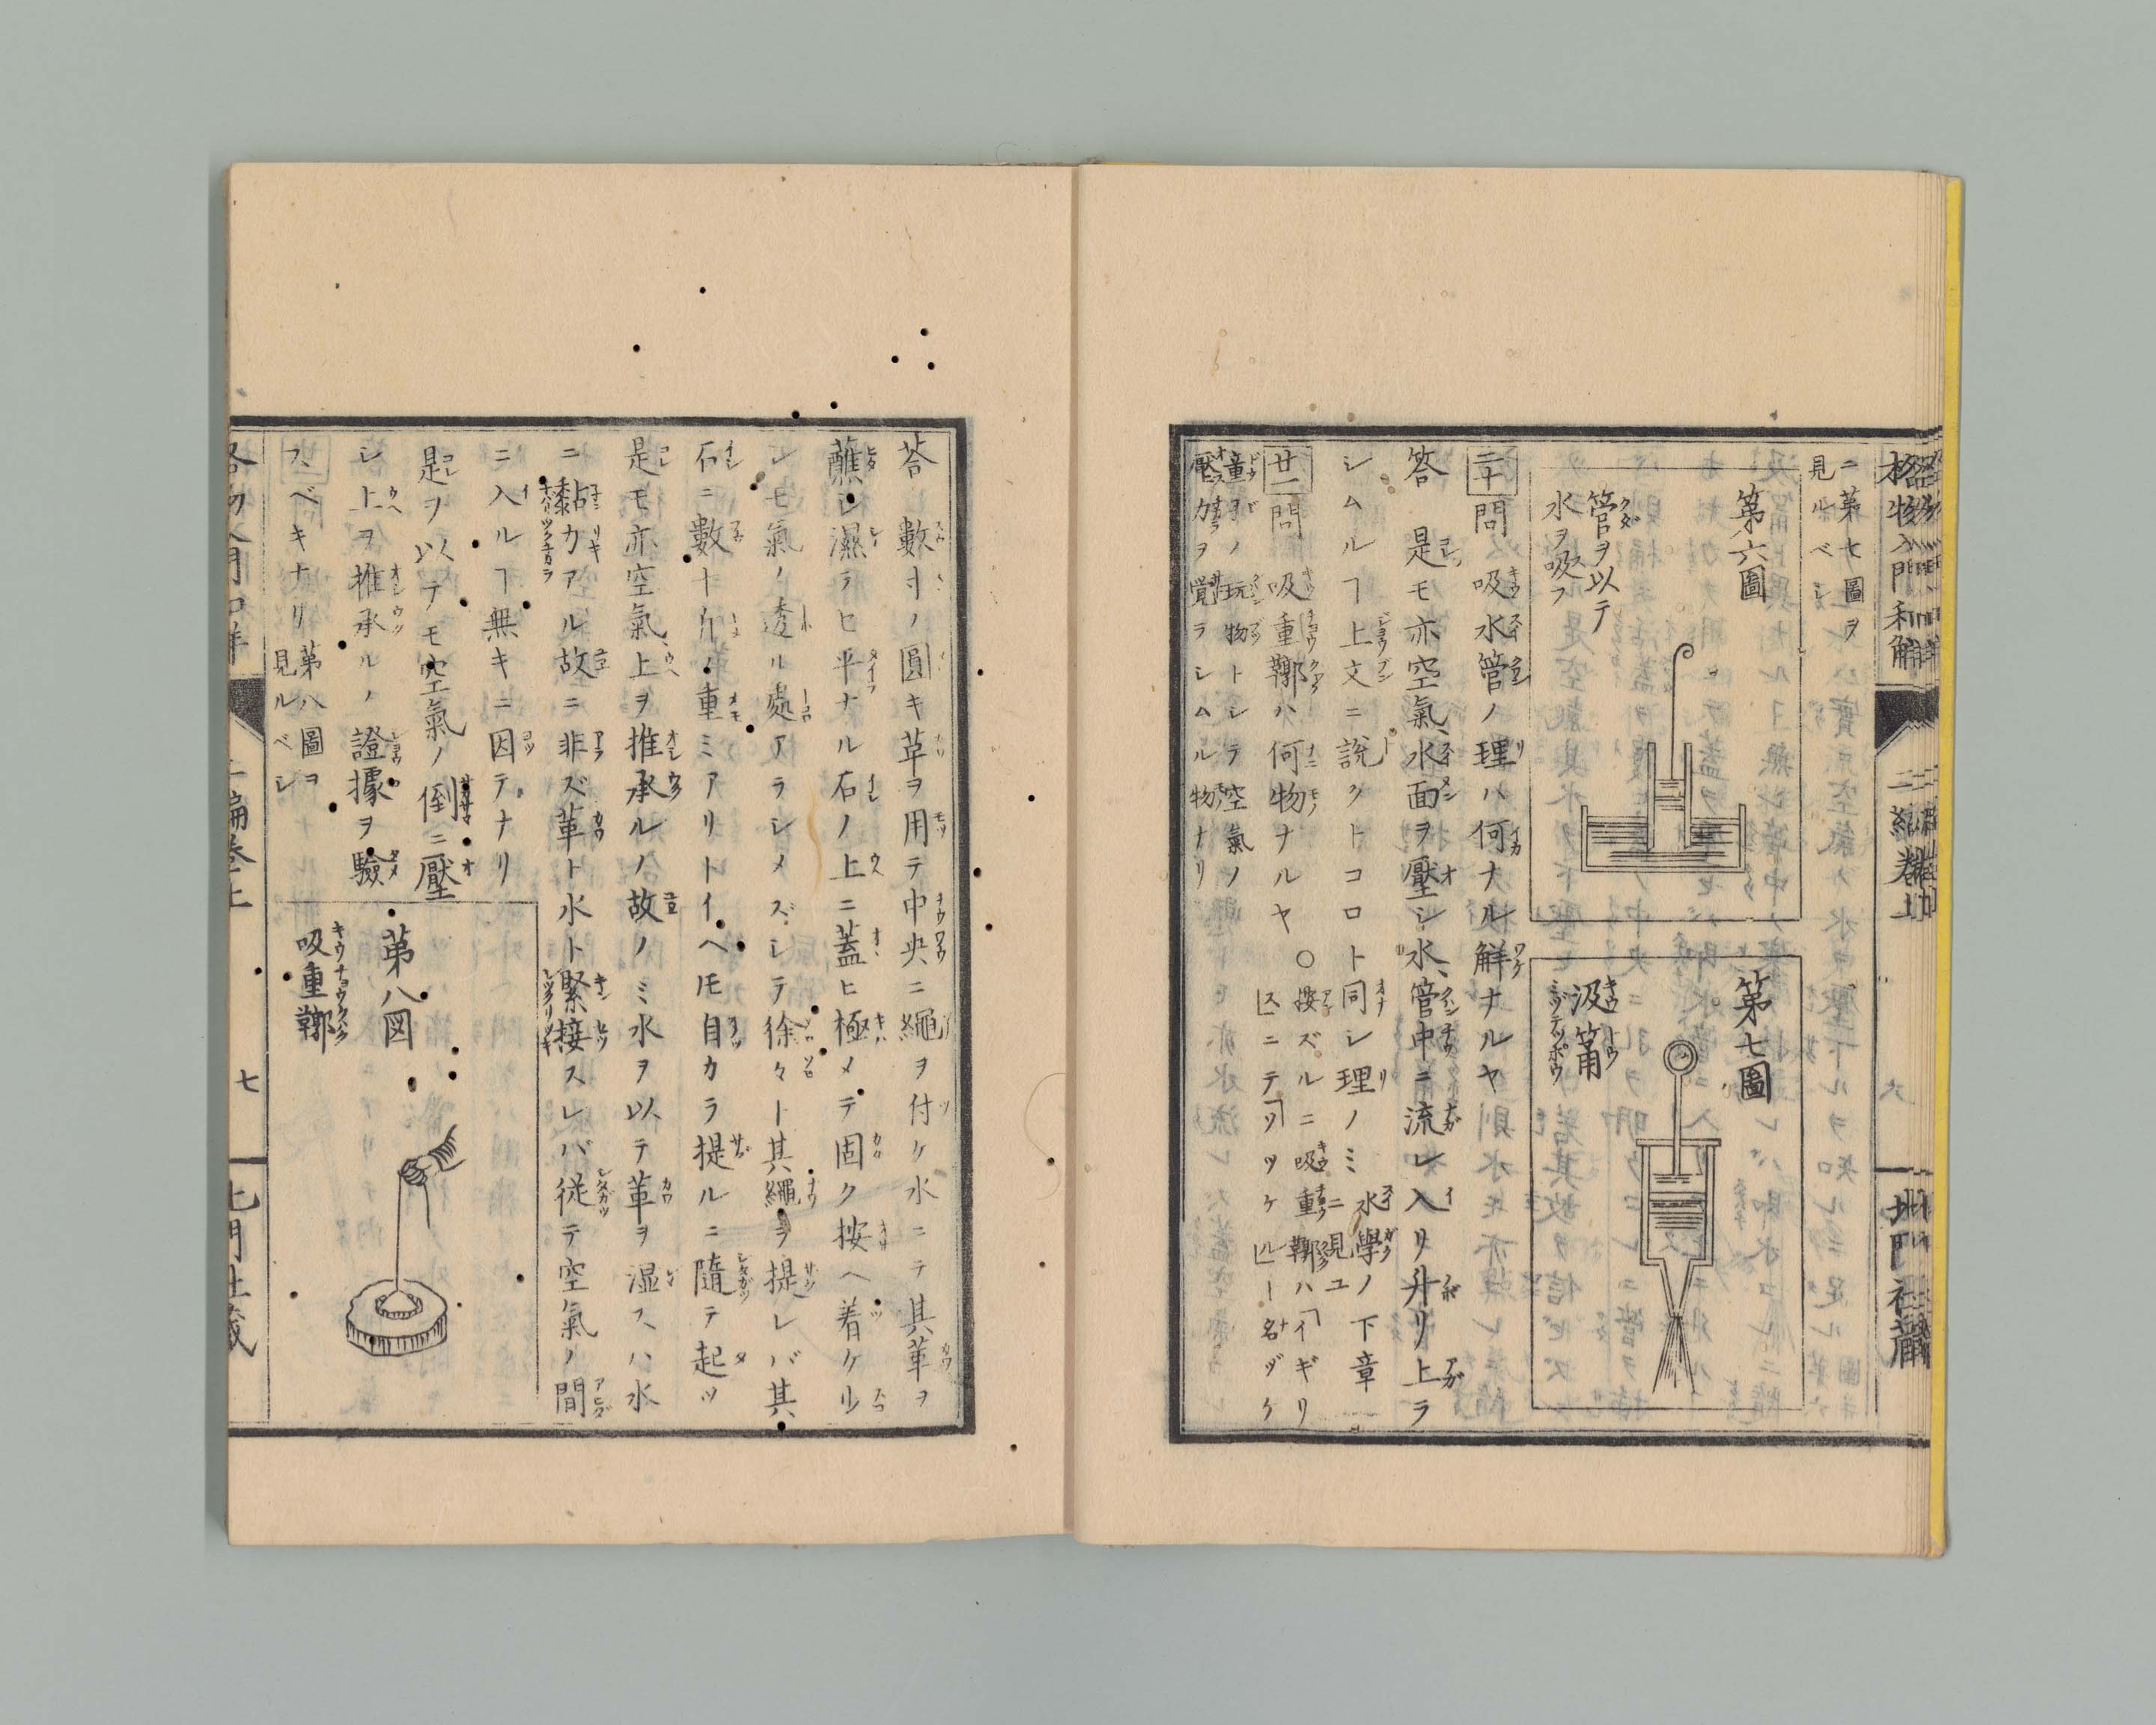 格物入門和解
二編卷上
六
北門社藏
ニ第七圖ヲ
見ルベシ
第六圖
管ヲ以テ
水ヲ吸フ
第七圖
汲筩
二十問 吸水管ノ理ハ何ナル解ナルヤ
答 是モ亦空氣、水面ヲ壓シ水、管中ニ流レ入リ升リ上ラ
シムルヿ上文ニ説クトコロト同シ理ノミ 水學ノ下章
ニ見ユ
廿一問 吸重鞹ハ何物ナルヤ ○按ズルニ吸重鞹ハ「イギリ
ス」ニテ「ツツケル」ト名ヅケ
童子ノ玩物トシテ空氣ノ
壓力ヲ覺ラシムル物ナリ
荅 數寸ノ圓キ革ヲ用テ中央ニ繩ヲ付ケ水ニテ其革ヲ
蘸シ濕ラヒ平ナル石ノ上ニ蓋ヒ極メテ固ク按ヘ着ケ少
シモ氣ノ透ル處アラシメズシテ徐々ト其繩ヲ提レバ其
石ニ數十斤ノ重ミアリトイヘ𪜈自カラ提ルニ隨テ起ツ
是モ亦空氣、上ヲ推承ルノ故ノミ水ヲ以テ革ヲ湿スハ水
ニ黏力アル故ニ非ズ革ト水ト緊接スレバ従テ空氣ノ間
ニ入ルヿ無キニ因テナリ
是ヲ以テモ空氣ノ倒ニ壓
シ上ヲ推承ルノ證據ヲ驗
スベキナリ 第八圖ヲ
見ルベシ
第八図
吸重鞹
格物入門和解
二編卷上
七
北門社藏